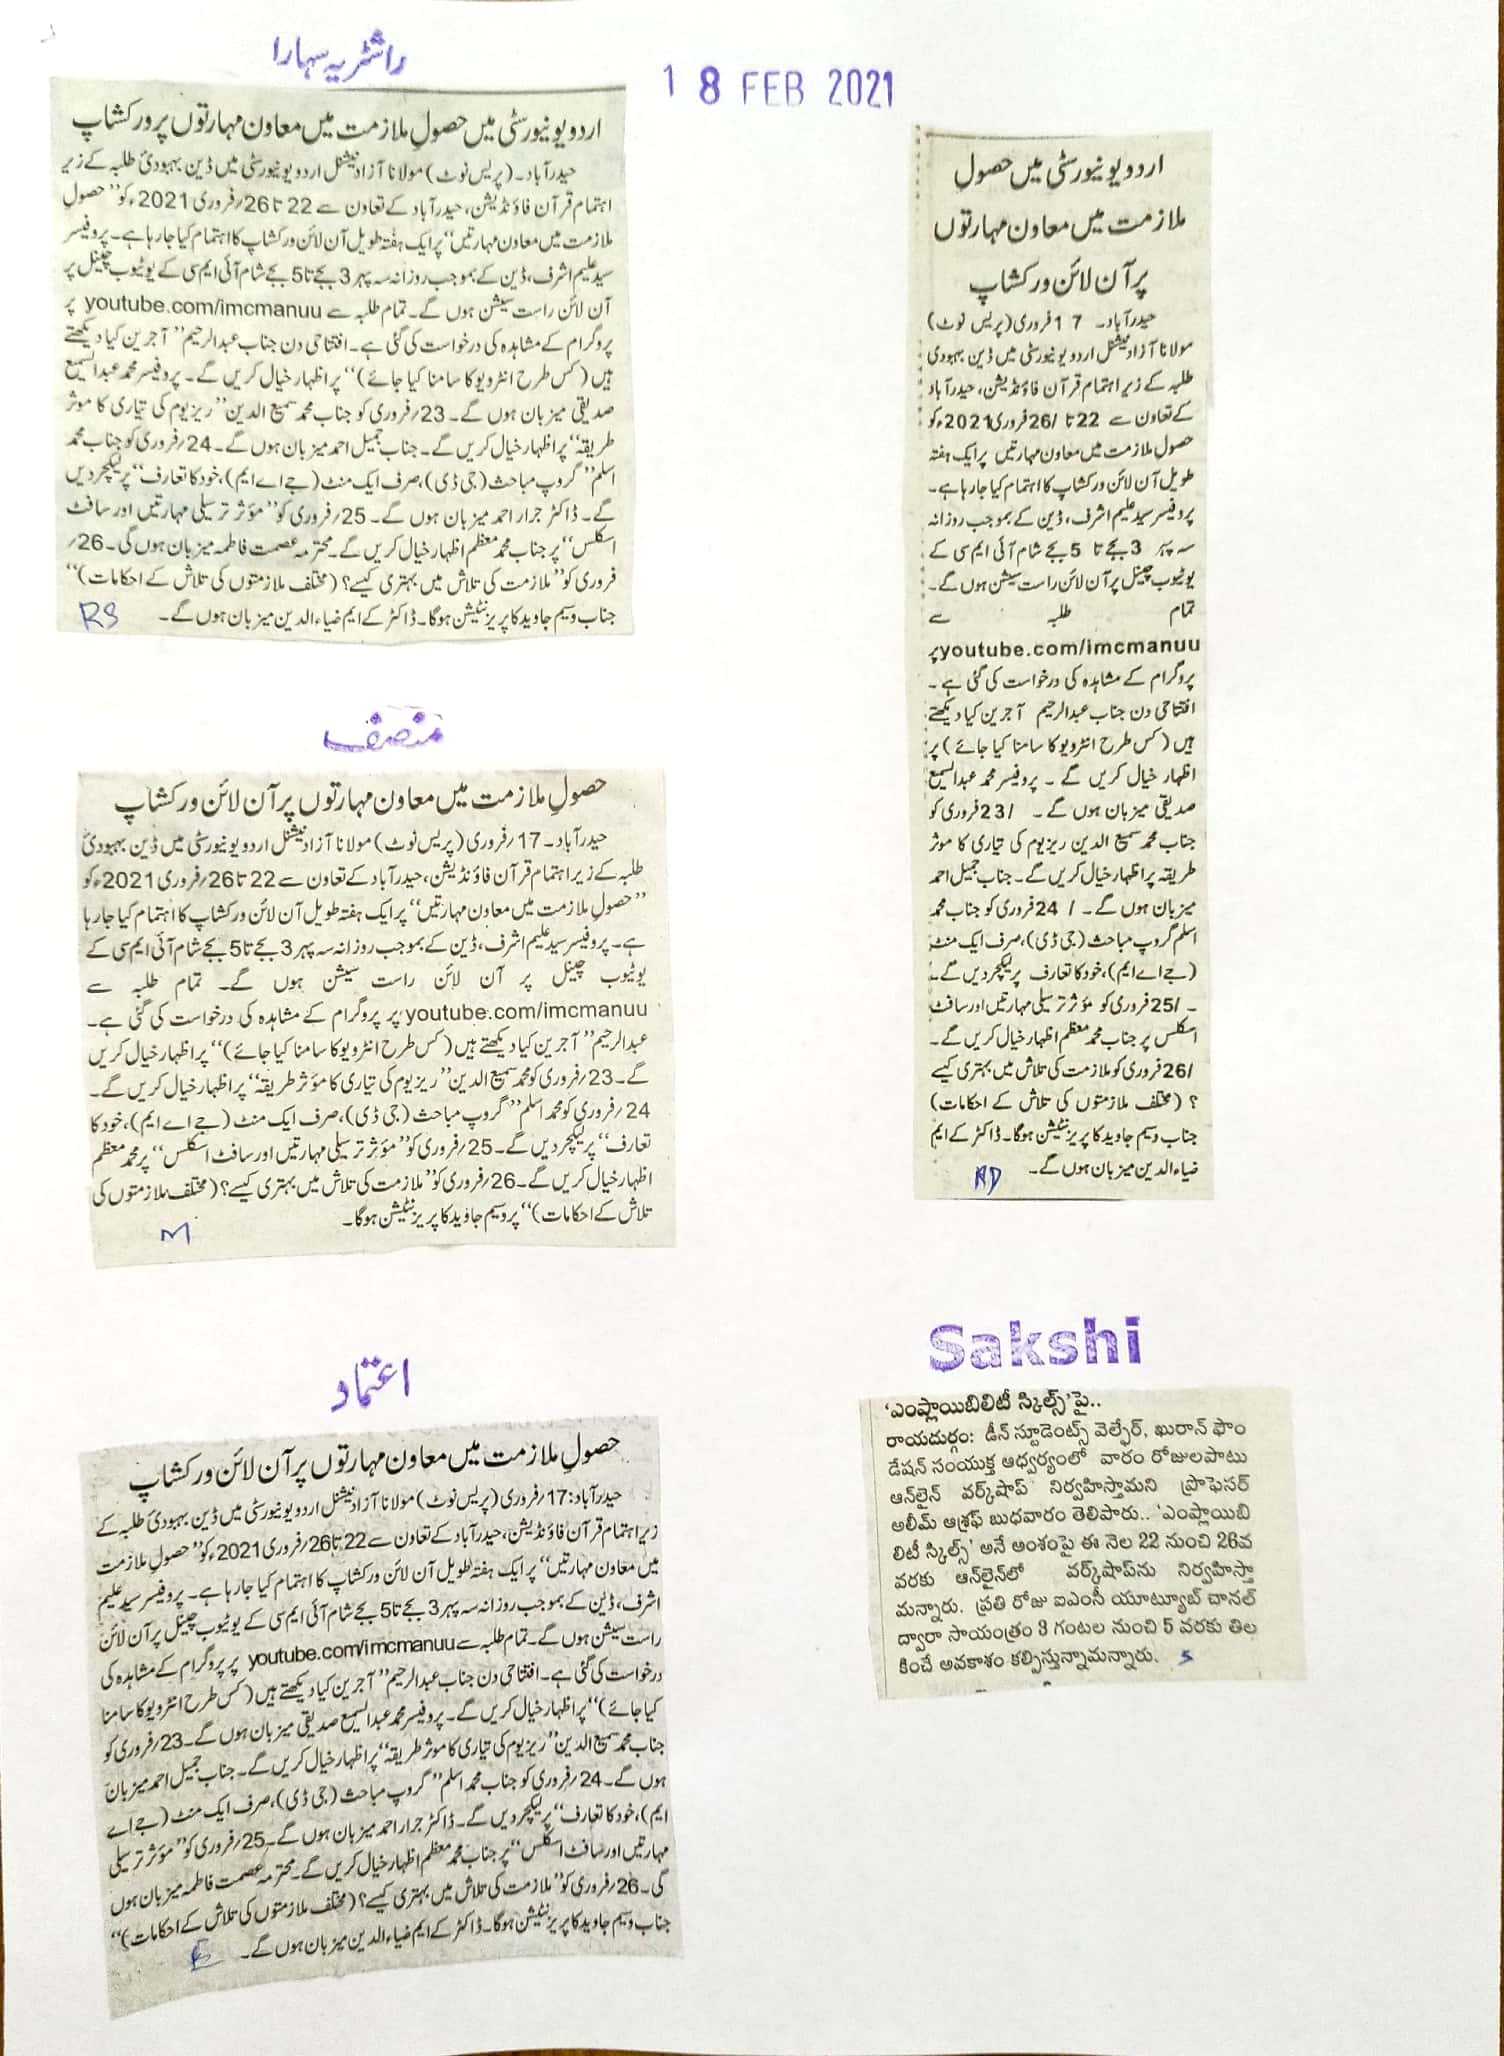 راشٹریہ سہارا
18 FEB 2021
اردو یونیورسٹی میں حصولِ ملازمت میں معاون مہارتوں پر ورکشاپ
حیدرآباد۔ (پریس نوٹ) مولانا آزاد نیشنل اردو یونیورسٹی میں ڈین بہبودیٔ طلبہ کے زیر
اہتمام قرآن فاؤنڈیشن، حیدرآباد کے تعاون سے 22 تا 26؍ فروری 2021ء کو ’’حصولِ
ملازمت میں معاون مہارتیں‘‘ پر ایک ہفتہ طویل آن لائن ورکشاپ کا اہتمام کیا جارہا ہے۔ پروفیسر
سید علیم اشرف، ڈین کے بموجب روزانہ سہ پہر 3 بجے تا 5 بجے شام آئی ایم سی کے یوٹیوب چینل پر
آن لائن راست سیشن ہوں گے۔ تمام طلبہ سے youtube.com/imcmanuu پر
پروگرام کے مشاہدہ کی درخواست کی گئی ہے۔ افتتاحی دن جناب عبدالرحیم ’’آجرین کیا دیکھتے
ہیں (کس طرح انٹرویو کا سامنا کیا جائے)‘‘ پر اظہار خیال کریں گے۔ پروفیسر محمد عبدالسمیع
صدیقی میزبان ہوں گے۔ 23؍ فروری کو جناب محمد سمیع الدین ’’ریزیوم کی تیاری کا موثر
طریقہ‘‘ پر اظہار خیال کریں گے۔ جناب جمیل احمد میزبان ہوں گے۔ 24؍ فروری کو جناب محمد
اسلم ’’گروپ مباحث (جی ڈی)، صرف ایک منٹ (جے اے ایم)، خود کا تعارف‘‘ پر لیکچر دیں
گے۔ ڈاکٹر جرار احمد میزبان ہوں گے۔ 25؍ فروری کو ’’مؤثر ترسیلی مہارتیں اور سافٹ
اسکلس‘‘ پر جناب محمد معظم اظہار خیال کریں گے۔ محترمہ عصمت فاطمہ میزبان ہوں گی۔ 26؍
فروری کو ’’ملازمت کی تلاش میں بہتری کیسے؟ (مختلف ملازمتوں کی تلاش کے احکامات)‘‘
جناب وسیم جاوید کا پریزنٹیشن ہوگا۔ ڈاکٹر کے ایم ضیاء الدین میزبان ہوں گے۔
RS
منصف
حصولِ ملازمت میں معاون مہارتوں پر آن لائن ورکشاپ
حیدرآباد۔ 17؍ فروری (پریس نوٹ) مولانا آزاد نیشنل اردو یونیورسٹی میں ڈین بہبودیٔ
طلبہ کے زیر اہتمام قرآن فاؤنڈیشن، حیدرآباد کے تعاون سے 22 تا 26؍ فروری 2021ء کو
’’حصولِ ملازمت میں معاون مہارتیں‘‘ پر ایک ہفتہ طویل آن لائن ورکشاپ کا اہتمام کیا جارہا
ہے۔ پروفیسر سید علیم اشرف، ڈین کے بموجب روزانہ سہ پہر 3 بجے تا 5 بجے شام آئی ایم سی کے
یوٹیوب چینل پر آن لائن راست سیشن ہوں گے۔ تمام طلبہ سے
youtube.com/imcmanuu پر پروگرام کے مشاہدہ کی درخواست کی گئی ہے۔
عبدالرحیم ’’آجرین کیا دیکھتے ہیں (کس طرح انٹرویو کا سامنا کیا جائے)‘‘ پر اظہار خیال کریں
گے۔ 23؍ فروری کو محمد سمیع الدین ’’ریزیوم کی تیاری کا مؤثر طریقہ‘‘ پر اظہار خیال کریں گے۔
24؍ فروری کو محمد اسلم ’’گروپ مباحث (جی ڈی)، صرف ایک منٹ (جے اے ایم)، خود کا
تعارف‘‘ پر لیکچر دیں گے۔ 25؍ فروری کو ’’مؤثر ترسیلی مہارتیں اور سافٹ اسکلس‘‘ پر محمد معظم
اظہار خیال کریں گے۔ 26؍ فروری کو ’’ملازمت کی تلاش میں بہتری کیسے؟ (مختلف ملازمتوں کی
تلاش کے احکامات)‘‘ پر وسیم جاوید کا پریزنٹیشن ہوگا۔
M
اعتماد
حصولِ ملازمت میں معاون مہارتوں پر آن لائن ورکشاپ
حیدرآباد: 17؍ فروری (پریس نوٹ) مولانا آزاد نیشنل اردو یونیورسٹی میں ڈین بہبودیٔ طلبہ کے
زیر اہتمام قرآن فاؤنڈیشن، حیدرآباد کے تعاون سے 22 تا 26؍ فروری 2021ء کو ’’حصولِ ملازمت
میں معاون مہارتیں‘‘ پر ایک ہفتہ طویل آن لائن ورکشاپ کا اہتمام کیا جارہا ہے۔ پروفیسر سید علیم
اشرف، ڈین کے بموجب روزانہ سہ پہر 3 بجے تا 5 بجے شام آئی ایم سی کے یوٹیوب چینل پر آن لائن
راست سیشن ہوں گے۔ تمام طلبہ سے youtube.com/imcmanuu پر پروگرام کے مشاہدہ کی
درخواست کی گئی ہے۔ افتتاحی دن جناب عبدالرحیم ’’آجرین کیا دیکھتے ہیں (کس طرح انٹرویو کا سامنا
کیا جائے)‘‘ پر اظہار خیال کریں گے۔ پروفیسر محمد عبدالسمیع صدیقی میزبان ہوں گے۔ 23؍ فروری کو
جناب محمد سمیع الدین ’’ریزیوم کی تیاری کا موثر طریقہ‘‘ پر اظہار خیال کریں گے۔ جناب جمیل احمد میزبان
ہوں گے۔ 24؍ فروری کو جناب محمد اسلم ’’گروپ مباحث (جی ڈی)، صرف ایک منٹ (جے اے
ایم)، خود کا تعارف‘‘ پر لیکچر دیں گے۔ ڈاکٹر جرار احمد میزبان ہوں گے۔ 25؍ فروری کو ’’مؤثر ترسیلی
مہارتیں اور سافٹ اسکلس‘‘ پر جناب محمد معظم اظہار خیال کریں گے۔ محترمہ عصمت فاطمہ میزبان ہوں
گی۔ 26؍ فروری کو ’’ملازمت کی تلاش میں بہتری کیسے؟ (مختلف ملازمتوں کی تلاش کے احکامات)‘‘
جناب وسیم جاوید کا پریزنٹیشن ہوگا۔ ڈاکٹر کے ایم ضیاء الدین میزبان ہوں گے۔
اردو یونیورسٹی میں حصولِ
ملازمت میں معاون مہارتوں
پر آن لائن ورکشاپ
حیدرآباد۔ 17 فروری (پریس نوٹ)
مولانا آزاد نیشنل اردو یونیورسٹی میں ڈین بہبودی
طلبہ کے زیر اہتمام قرآن فاؤنڈیشن، حیدرآباد
کے تعاون سے 22 تا /26 فروری 2021ء کو
حصولِ ملازمت میں معاون مہارتیں پر ایک ہفتہ
طویل آن لائن ورکشاپ کا اہتمام کیا جارہا ہے۔
پروفیسر سید علیم اشرف، ڈین کے بموجب روزانہ
سہ پہر 3 بجے تا 5 بجے شام آئی ایم سی کے
یوٹیوب چینل پر آن لائن راست سیشن ہوں گے۔
تمام طلبہ سے
youtube.com/imcmanuu پر
پروگرام کے مشاہدہ کی درخواست کی گئی ہے۔
افتتاحی دن جناب عبدالرحیم آجرین کیا دیکھتے
ہیں (کس طرح انٹرویو کا سامنا کیا جائے) پر
اظہار خیال کریں گے۔ پروفیسر محمد عبدالسمیع
صدیقی میزبان ہوں گے۔ /23 فروری کو
جناب محمد سمیع الدین ریزیوم کی تیاری کا موثر
طریقہ پر اظہار خیال کریں گے۔ جناب جمیل احمد
میزبان ہوں گے۔ / 24 فروری کو جناب محمد
اسلم گروپ مباحث (جی ڈی)، صرف ایک منٹ
(جے اے ایم)، خود کا تعارف پر لیکچر دیں گے۔
۔ /25 فروری کو مؤثر ترسیلی مہارتیں اور سافٹ
اسکلس پر جناب محمد معظم اظہار خیال کریں گے۔
/26 فروری کو ملازمت کی تلاش میں بہتری کیسے
؟ (مختلف ملازمتوں کی تلاش کے احکامات)
جناب وسیم جاوید کا پریزنٹیشن ہوگا۔ ڈاکٹر کے ایم
ضیاء الدین میزبان ہوں گے۔
RD
Sakshi
‘ఎంప్లాయిబిలిటీ స్కిల్స్’పై..
రాయదుర్గం: డీన్ స్టూడెంట్స్ వెల్ఫేర్, ఖురాన్ ఫౌం
డేషన్ సంయుక్త ఆధ్వర్యంలో వారం రోజులపాటు
ఆన్‌లైన్ వర్క్‌షాప్ నిర్వహిస్తామని ప్రొఫెసర్
అలీమ్ ఆశ్రఫ్ బుధవారం తెలిపారు.. ‘ఎంప్లాయిబి
లిటీ స్కిల్స్’ అనే అంశంపై ఈ నెల 22 నుంచి 26వ
వరకు ఆన్‌లైన్‌లో వర్క్‌షాప్‌ను నిర్వహిస్తా
మన్నారు. ప్రతి రోజు ఐఎంసీ యూట్యూబ్ చానల్
ద్వారా సాయంత్రం 3 గంటల నుంచి 5 వరకు తిల
కించే అవకాశం కల్పిస్తున్నామన్నారు.
S